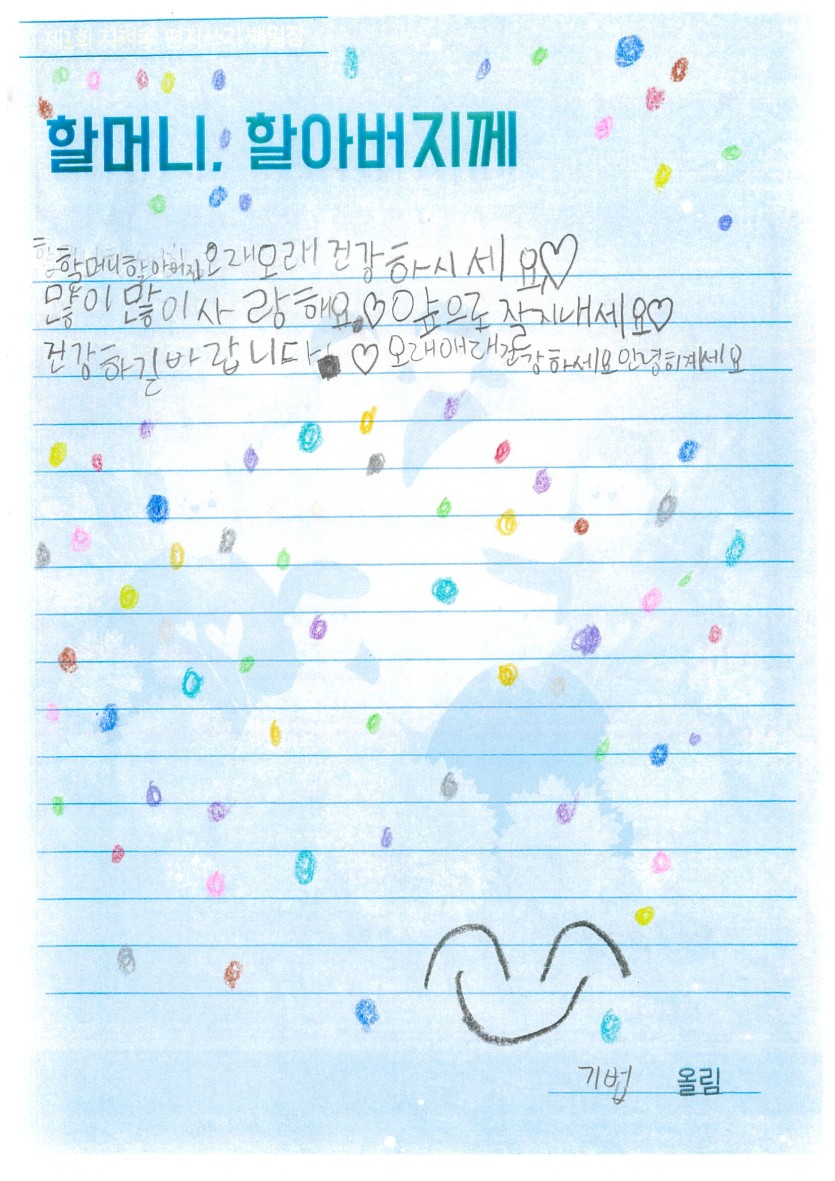 제1회 지혜롬 편지쓰기 백일장
할머니, 할아버지께
할머니할아버지 오래오래 건강하시세요♡
많이많이사랑해요.♡앞으로 잘지내세요♡
건강하길바랍니다. ♡ 오래애래건강하세요안녕히계세요
기법 올림